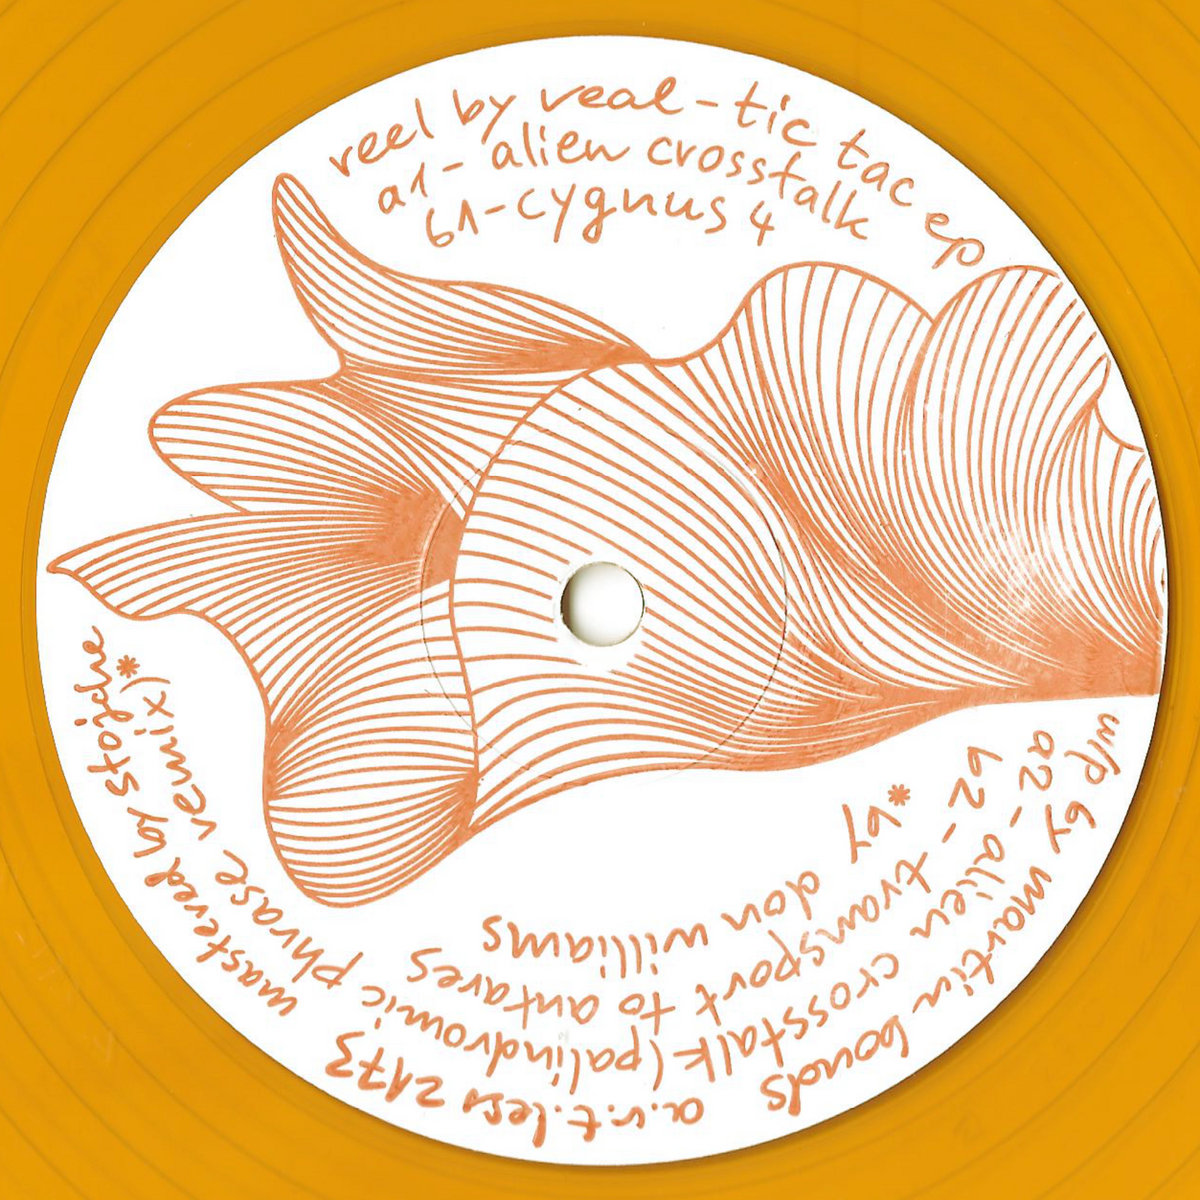 reel by real - tic tac ep
a1 - alien crosstalk
b1 - cygnus 4
w/p by martin bounds
a.r.t.less 2173
mastered by stojche
a2 - alien crosstalk (palindromic phrase remix)*
b2 - transport to antares
*by don williams